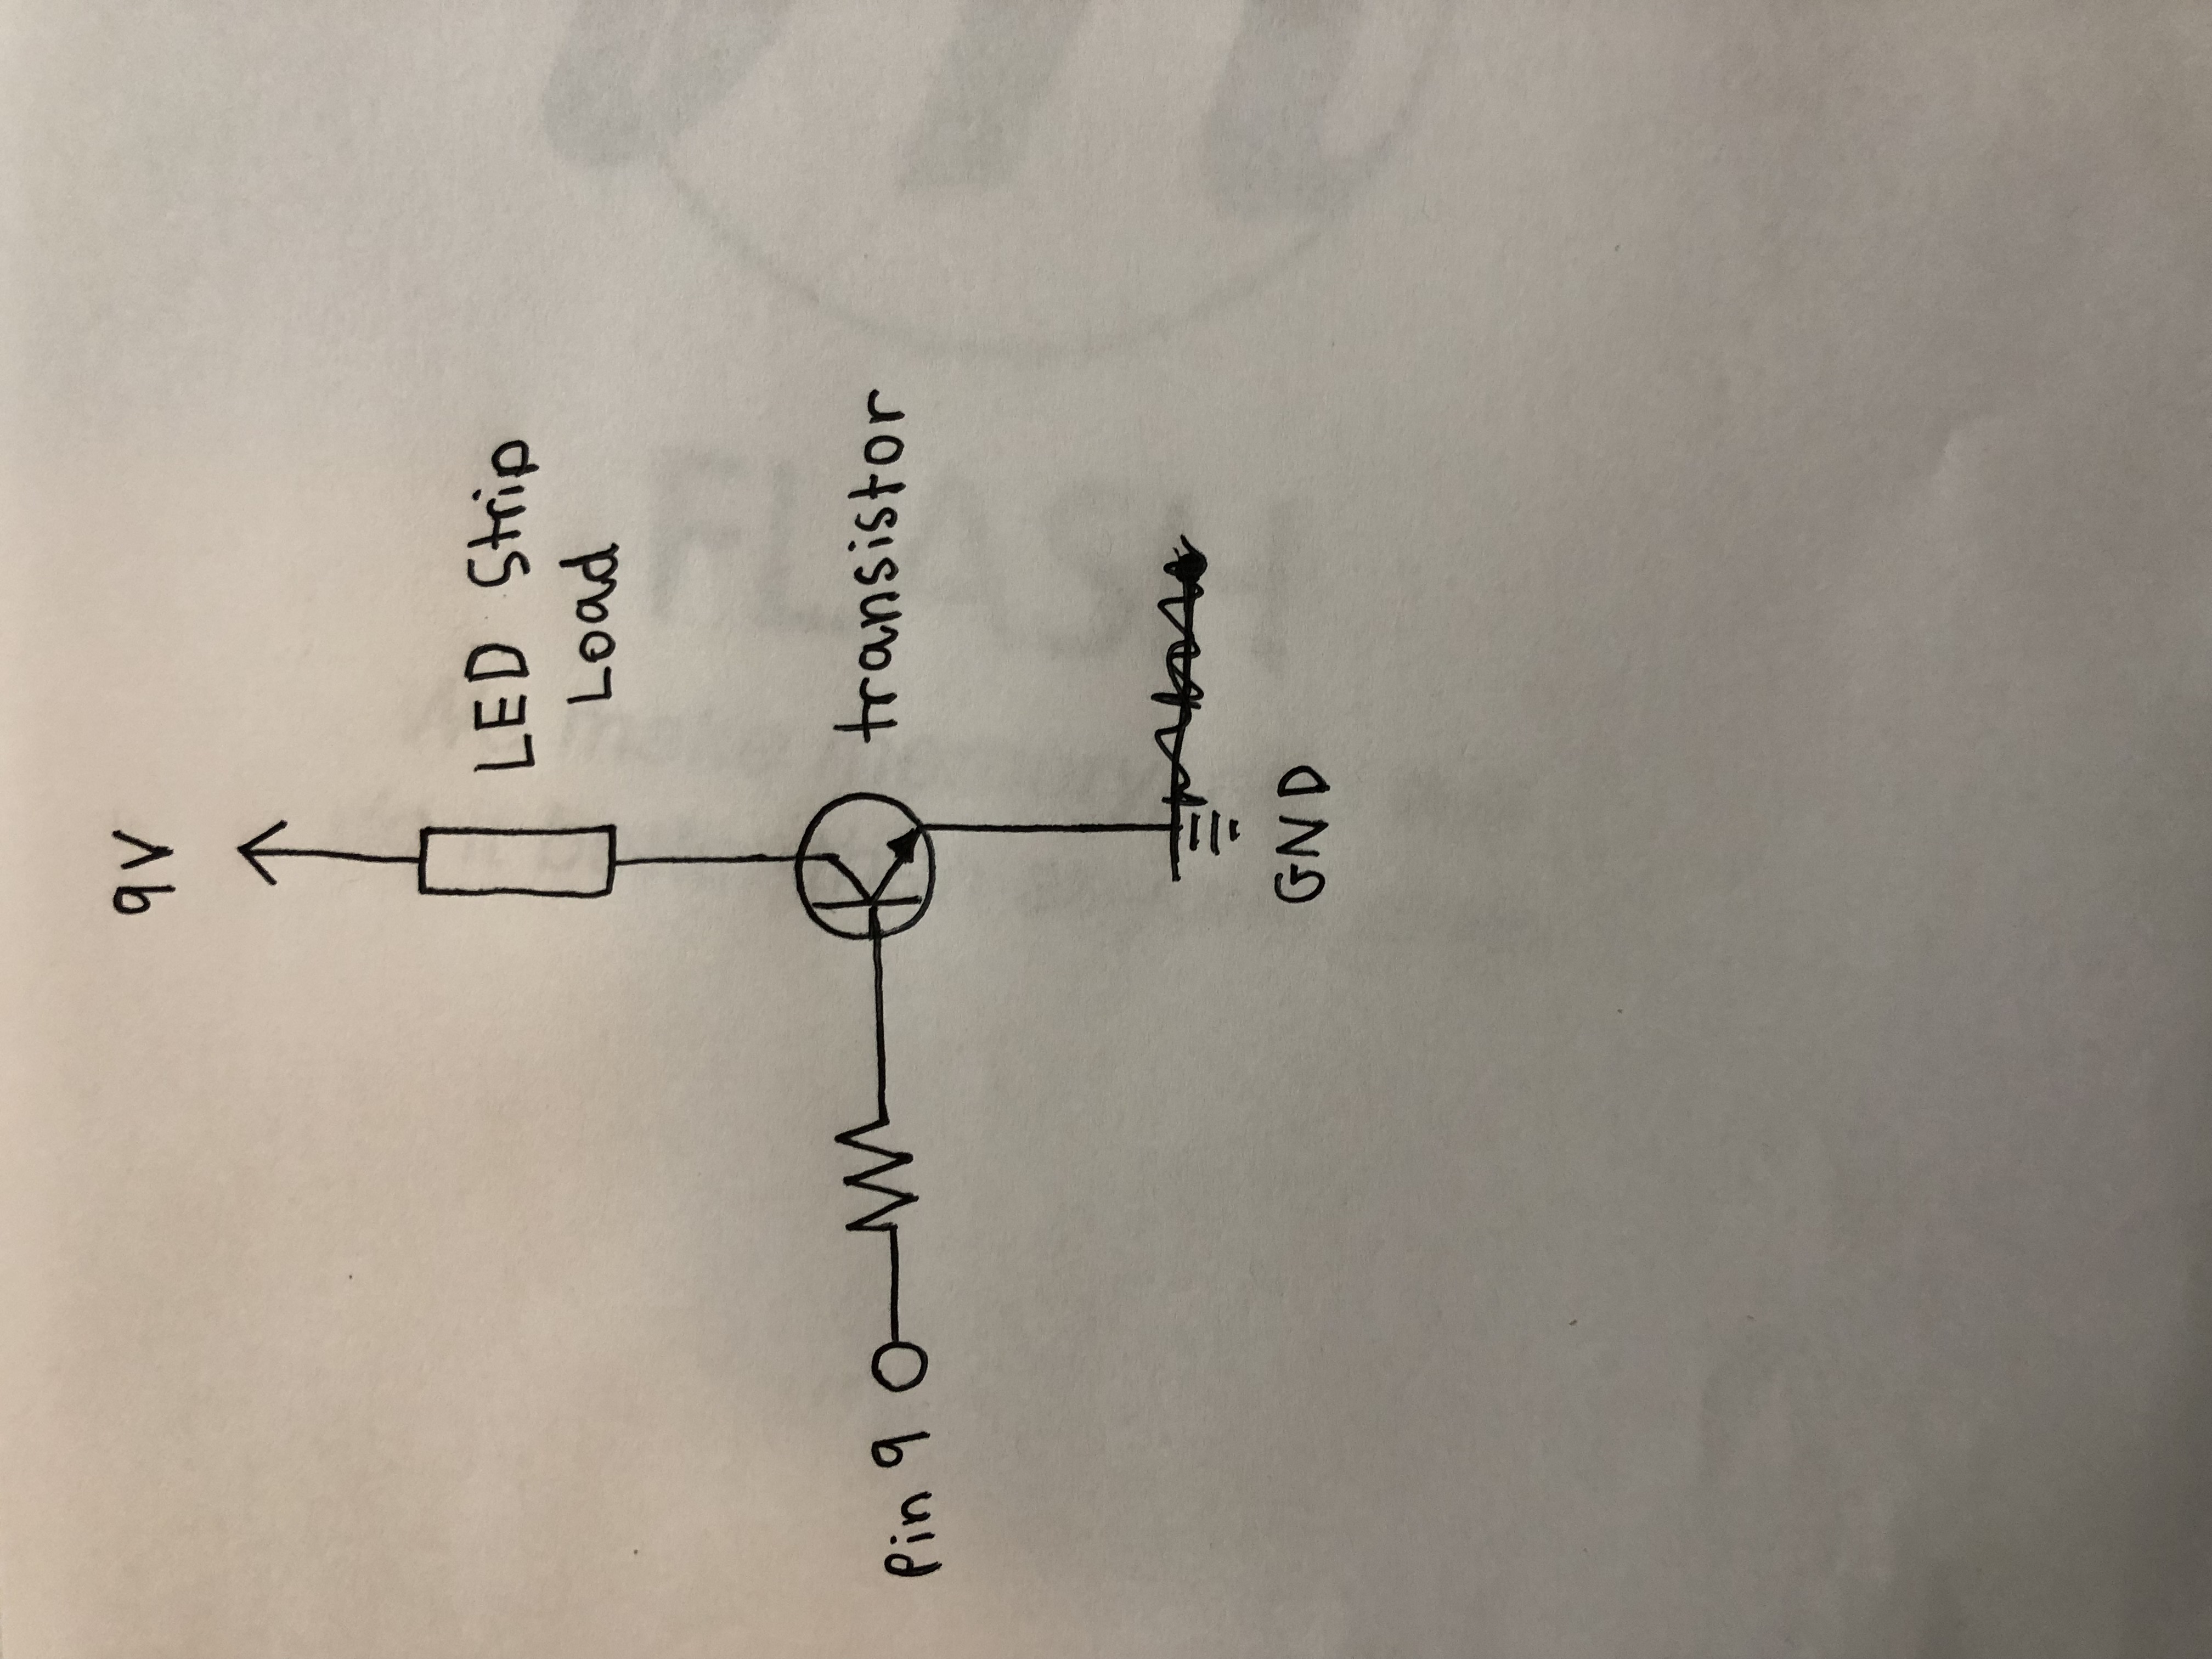 9V
LED Strip
Load
Pin 9
transistor
GND